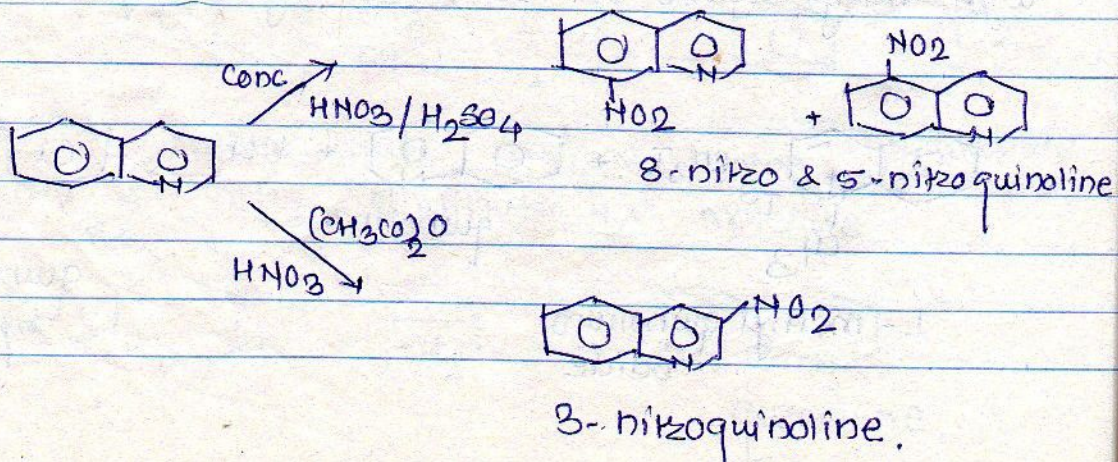 Conc
HNO3/H2SO4
N
NO2
+
NO2
N
N
8-nitro & 5-nitroquinoline
(CH3CO)2O
HNO3
NO2
N
3-nitroquinoline.